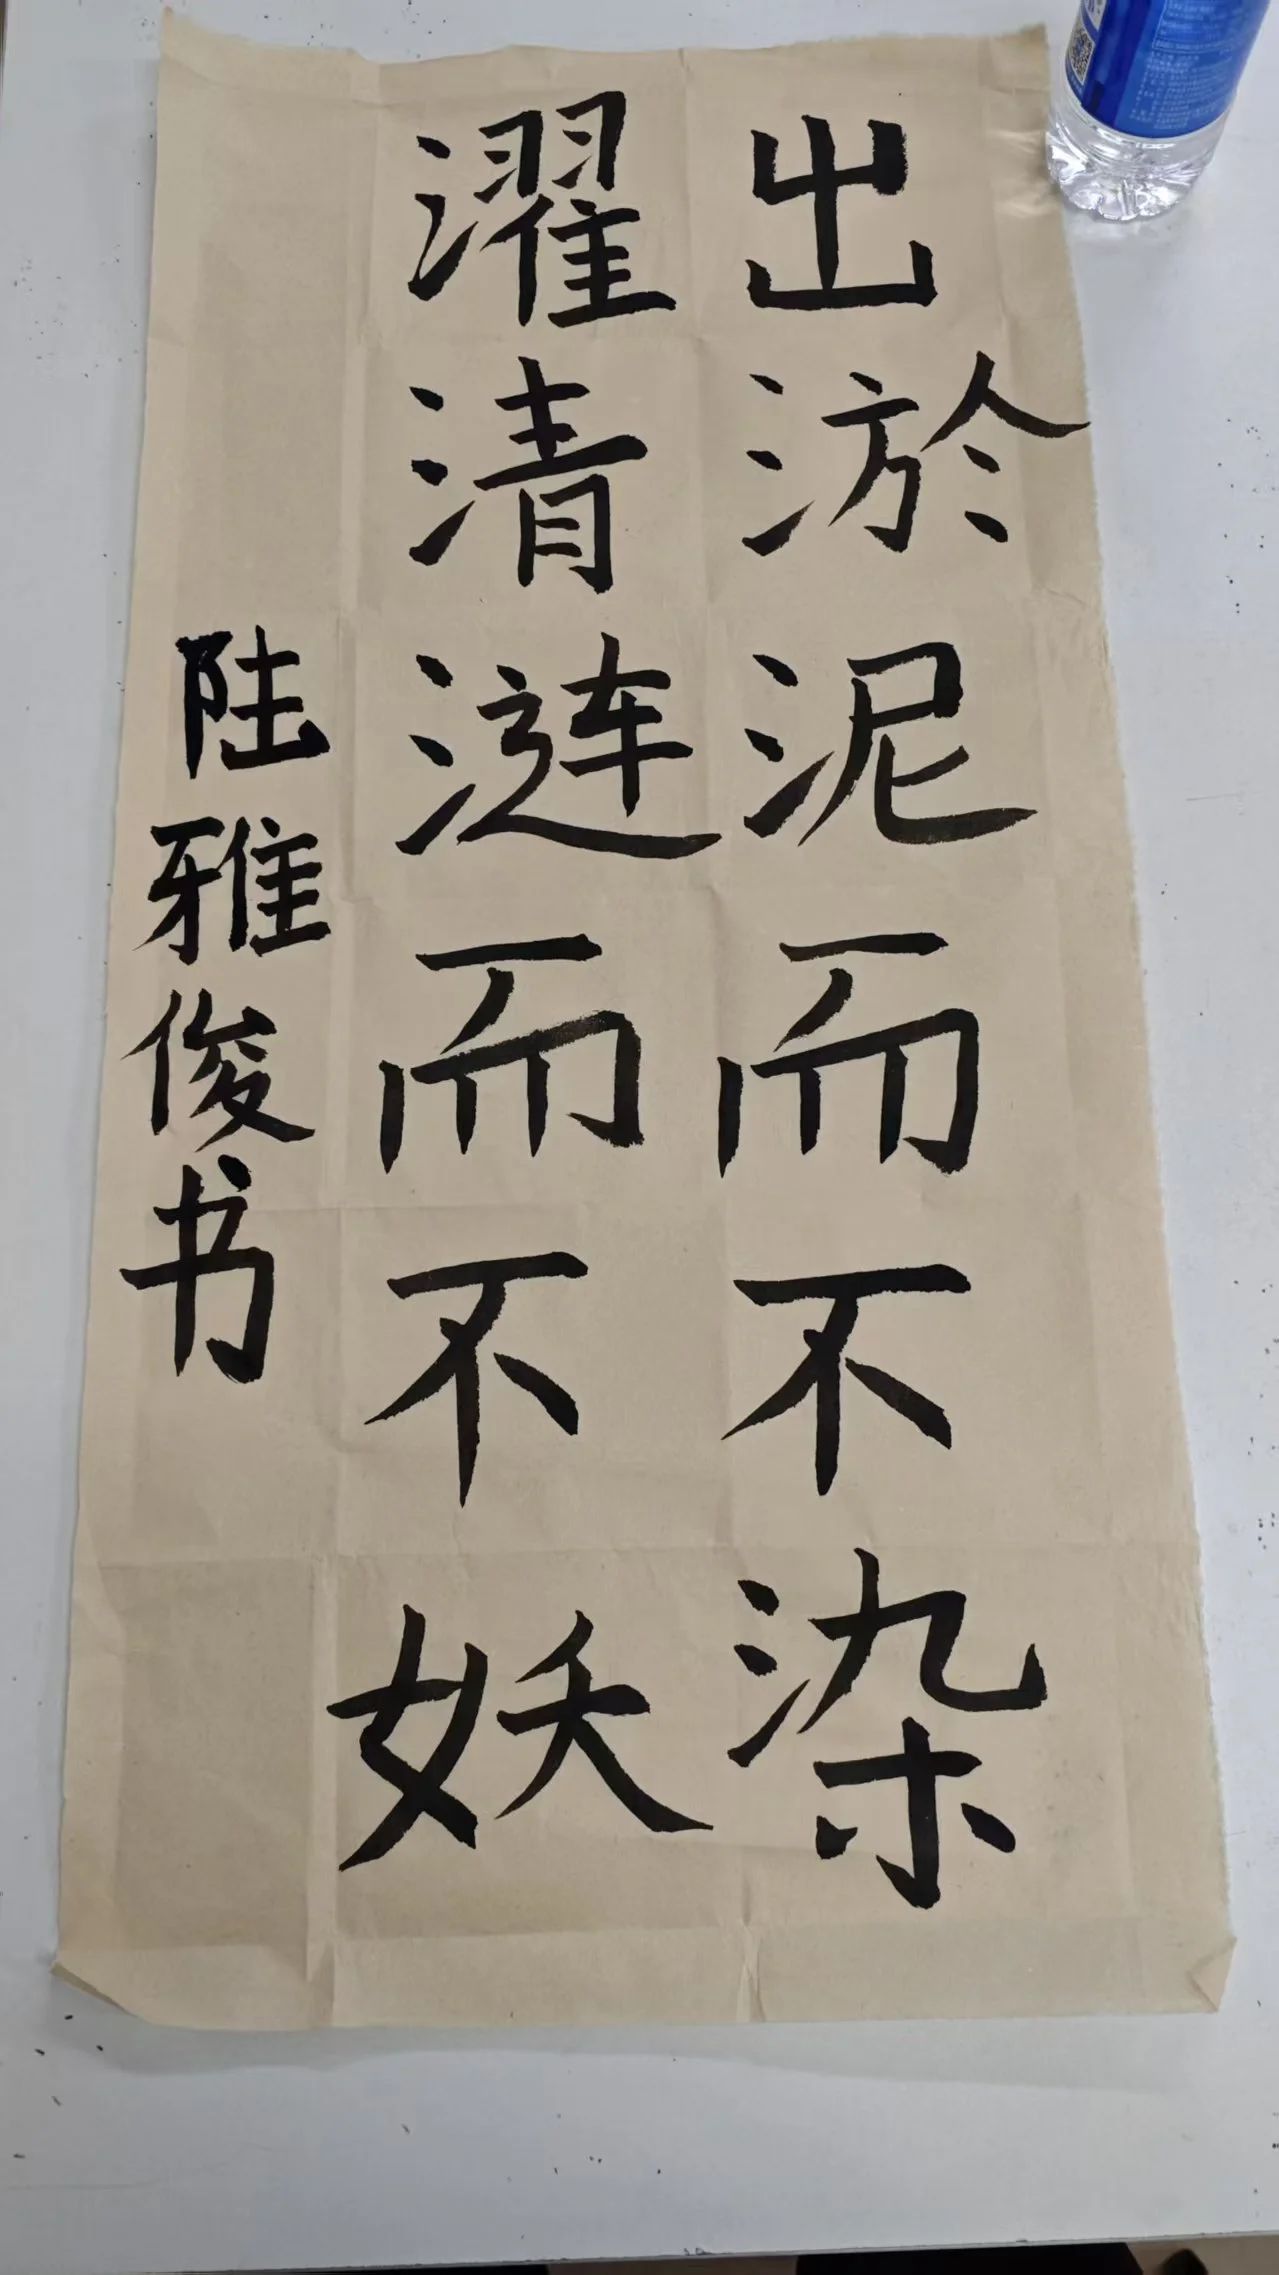 出淤泥而不染
濯清涟而不妖
陆雅俊书